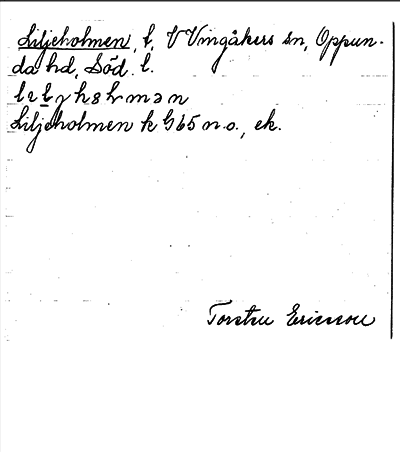 Liljeholmen, t, V Vingåkers sn, Oppun-
da hd, Söd. l.
Liljeholmen k G65 n.o., ek.
Torsten Ericsson